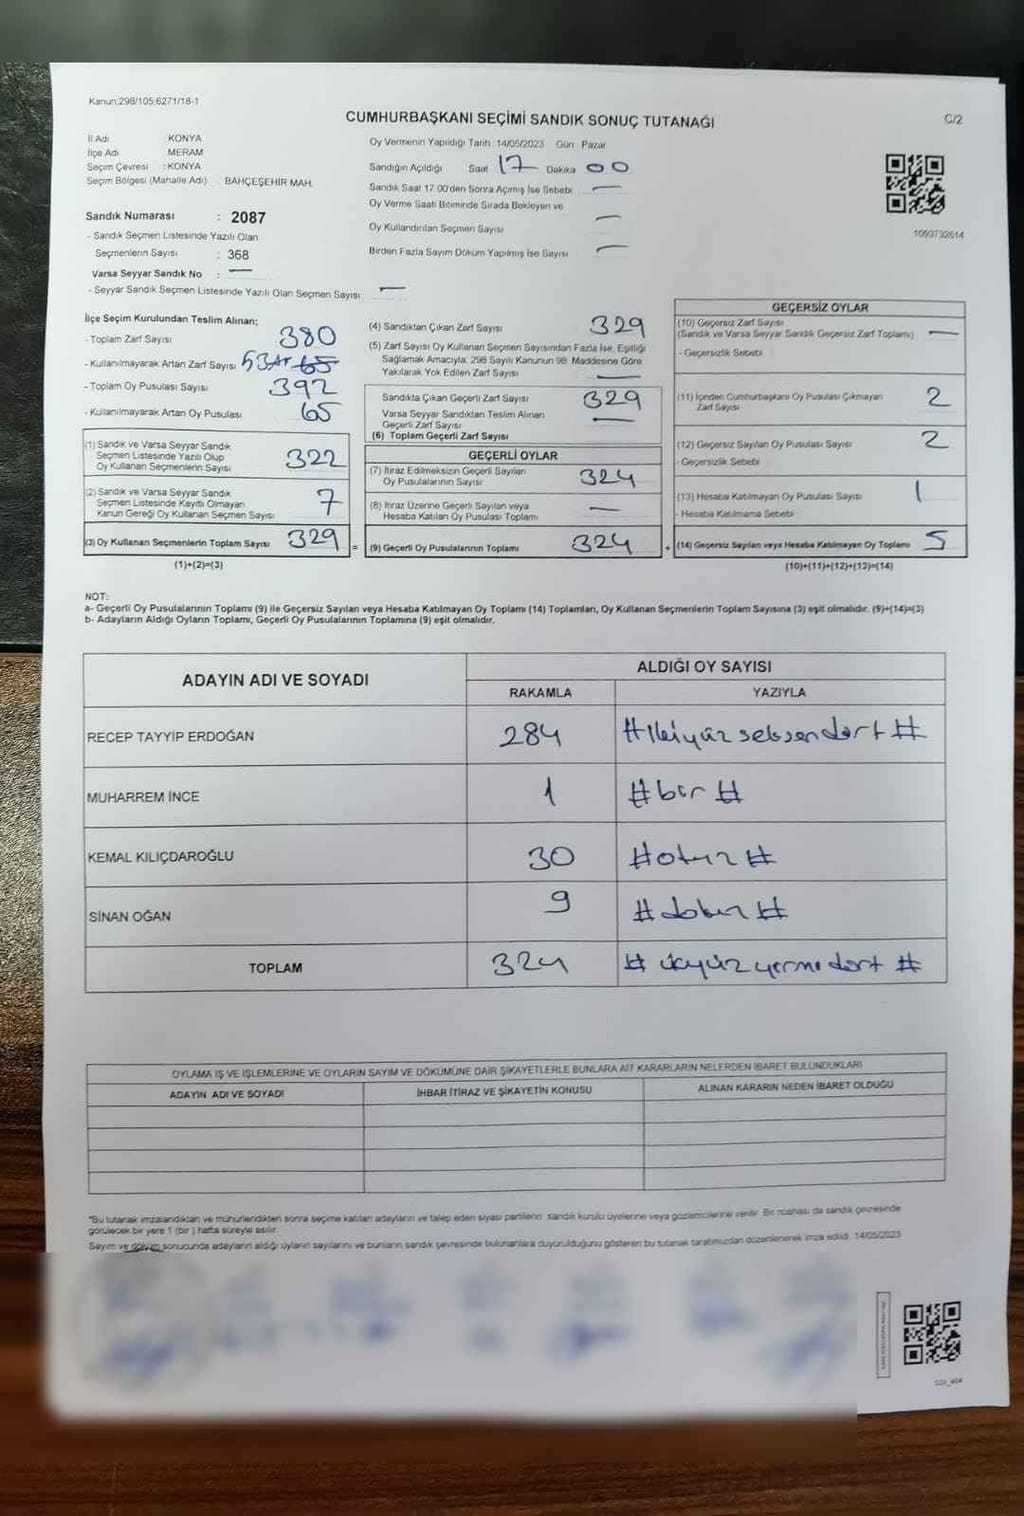 Kanun:298/105;6271/18-1
CUMHURBAŞKANI SEÇİMİ SANDIK SONUÇ TUTANAĞI
C/2
İl Adı : KONYA
İlçe Adı : MERAM
Seçim Çevresi : KONYA
Seçim Bölgesi (Mahalle Adı) : BAHÇEŞEHİR MAH.
Sandık Numarası : 2087
- Sandık Seçmen Listesinde Yazılı Olan
Seçmenlerin Sayısı : 368
Varsa Seyyar Sandık No : —
- Seyyar Sandık Seçmen Listesinde Yazılı Olan Seçmen Sayısı —
Oy Vermenin Yapıldığı Tarih: 14/05/2023 Gün: Pazar
Sandığın Açıldığı Saat 17 Dakika 00
Sandık Saat 17:00'den Sonra Açımış İse Sebebi —
Oy Verme Saati Bitiminde Sırada Bekleyen ve
Oy Kullandırılan Seçmen Sayısı —
Birden Fazla Sayım Döküm Yapılmış İse Sayısı —
1093792614
İlçe Seçim Kurulundan Teslim Alınan;
- Toplam Zarf Sayısı 380
- Kullanılmayarak Artan Zarf Sayısı
- Toplam Oy Pusulası Sayısı 392
- Kullanılmayarak Artan Oy Pusulası 65
(1) Sandık ve Varsa Seyyar Sandık
Seçmen Listesinde Yazılı Olup
Oy Kullanan Seçmenlerin Sayısı 322
(2) Sandık ve Varsa Seyyar Sandık
Seçmen Listesinde Kayıtlı Olmayan
Kanun Gereği Oy Kullanan Seçmen Sayısı 7
(3) Oy Kullanan Seçmenlerin Toplam Sayısı 329 =
(1)+(2)=(3)
(4) Sandıktan Çıkan Zarf Sayısı 329
(5) Zarf Sayısı Oy Kullanan Seçmen Sayısından Fazla İse, Eşitliği
Sağlamak Amacıyla, 298 Sayılı Kanunun 98. Maddesine Göre
Yakılarak Yok Edilen Zarf Sayısı —
Sandıkta Çıkan Geçerli Zarf Sayısı 329
Varsa Seyyar Sandıktan Teslim Alınan
Geçerli Zarf Sayısı —
(6) Toplam Geçerli Zarf Sayısı
GEÇERLİ OYLAR
(7) İtiraz Edilmeksizin Geçerli Sayılan
Oy Pusulalarının Sayısı 324
(8) İtiraz Üzerine Geçerli Sayılan veya
Hesaba Katılan Oy Pusulası Toplamı —
(9) Geçerli Oy Pusulalarının Toplamı 324 +
GEÇERSİZ OYLAR
(10) Geçersiz Zarf Sayısı
(Sandık ve Varsa Seyyar Sandık Geçersiz Zarf Toplamı) —
- Geçersizlik Sebebi :
(11) İçinden Cumhurbaşkanı Oy Pusulası Çıkmayan
Zarf Sayısı 2
(12) Geçersiz Sayılan Oy Pusulası Sayısı 2
- Geçersizlik Sebebi
(13) Hesaba Katılmayan Oy Pusulası Sayısı 1
- Hesaba Katılmama Sebebi
(14) Geçersiz Sayılan veya Hesaba Katılmayan Oy Toplamı 5
(10)+(11)+(12)+(13)=(14)
NOT:
a- Geçerli Oy Pusulalarının Toplamı (9) ile Geçersiz Sayılan veya Hesaba Katılmayan Oy Toplam (14) Toplamları, Oy Kullanan Seçmenlerin Toplam Sayısına (3) eşit olmalıdır. (9)+(14)=(3)
b- Adayların Aldığı Oyların Toplamı, Geçerli Oy Pusulalarının Toplamına (9) eşit olmalıdır.
ADAYIN ADI VE SOYADI
ALDIĞI OY SAYISI
RAKAMLA YAZIYLA
RECEP TAYYİP ERDOĞAN 284 #ikiyüz seksendört#
MUHARREM İNCE 1 #bir#
KEMAL KILIÇDAROĞLU 30 #otuz#
SİNAN OĞAN 9 #dokuz#
TOPLAM 324 # üçyüzyirmi dört #
OYLAMA İŞ VE İŞLEMLERİNE VE OYLARIN SAYIM VE DÖKÜMÜNE DAİR ŞİKAYETLERLE BUNLARA AİT KARARLARIN NELERDEN İBARET BULUNDUKLARI
ADAYIN ADI VE SOYADI İHBAR İTİRAZ VE ŞİKAYETİN KONUSU ALINAN KARARIN NEDEN İBARET OLDUĞU
*Bu tutanak imzalandıktan ve mühürlendikten sonra seçime katılan adayların ve talep eden siyasi partilerin sandık kurulu üyelerine veya gözlemcilerine verilir. Bir nüshası da sandık çevresinde
görülecek bir yere 1 (bir) hafta süreyle asılır.
Sayım ve döküm sonucunda adayların aldığı oyların sayılarını ve bunların sandık çevresinde bulunanlara duyurulduğunu gösteren bu tutanak tarafımızdan düzenlenerek imza edildi. 14/05/2023